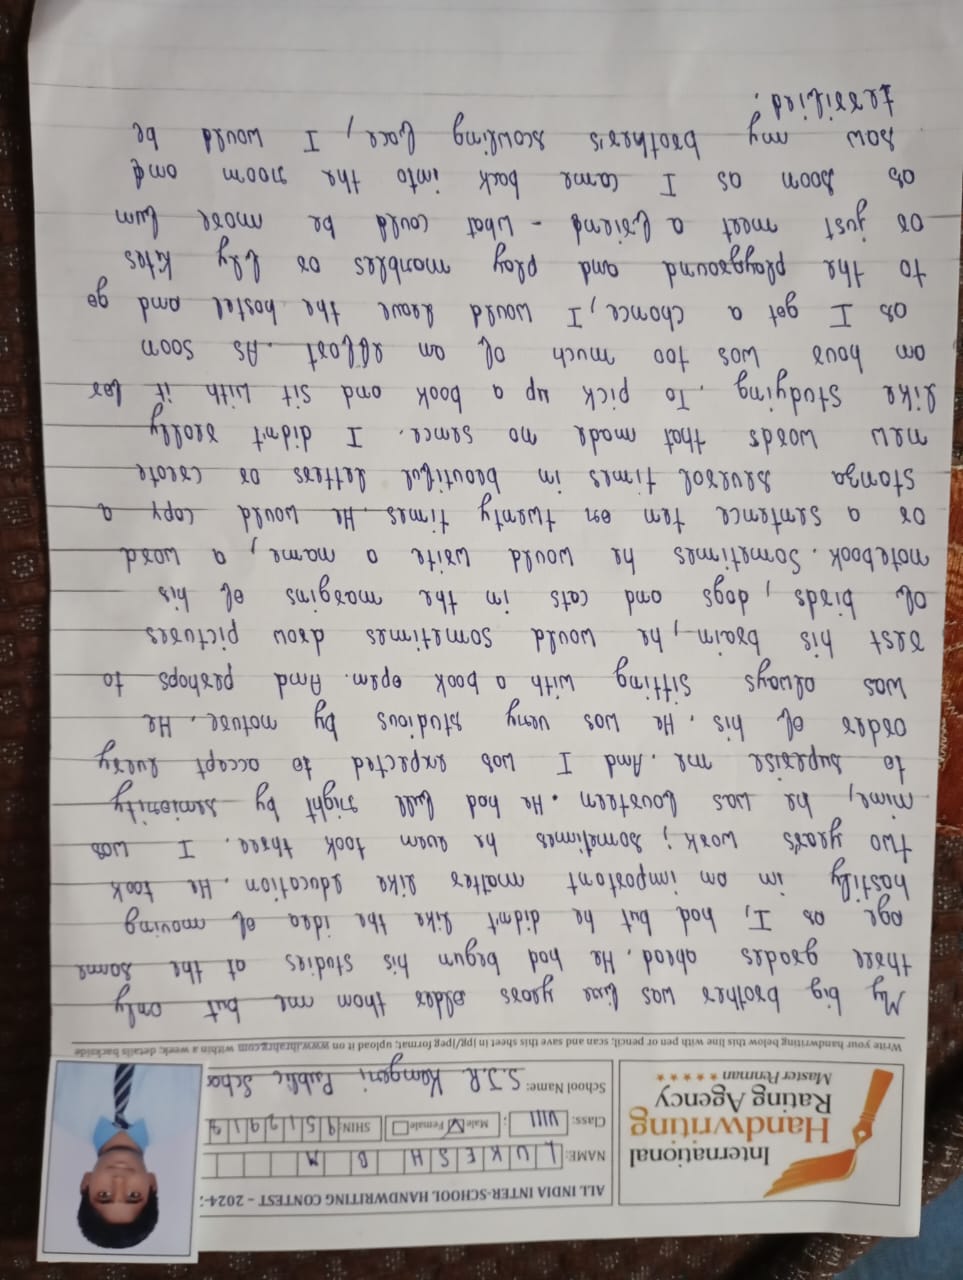 ALL INDIA INTER-SCHOOL HANDWRITING CONTEST - 2024-
International
Handwriting
Rating Agency
Master Penman
NAME: LUKESH B M
Class: VIII Male Female SHIN:
School Name: S.J.R. Kengeri Public School
Write your handwriting below this line with pen or pencil, scan and save this sheet in jpg/jpeg format; upload it on www.ihrahrg.com within a week; details backside
My big brother was five years older than me but only
three grades ahead. He had begun his studies at the same
age as I, had but he didn't like the idea of moving
hastily in an important matter like education. He took
two years work; sometimes he even took three. I was
nine, he was fourteen. He had full right by seniority
to superise me. And I was expected to accept every
order of his. He was very studious by nature. He
was always sitting with a book open. And perhaps to
rest his brain, he would sometimes draw pictures
of birds, dogs and cats in the margins of his
notebook. Sometimes he would write a name, a word
or a sentence ten or twenty times. He would copy a
stanza several times in beautiful letters or create
new words that made no sence. I didn't really
like studying. To pick up a book and sit with it for
an hour was too much of an effort. As soon
as I get a chance, I would leave the hostel and go
to the playground and play marbles or fly kites
or just meet a friend - what could be more fun
as soon as I came back into the room and
saw my brother's scowling face, I would be
terrified?